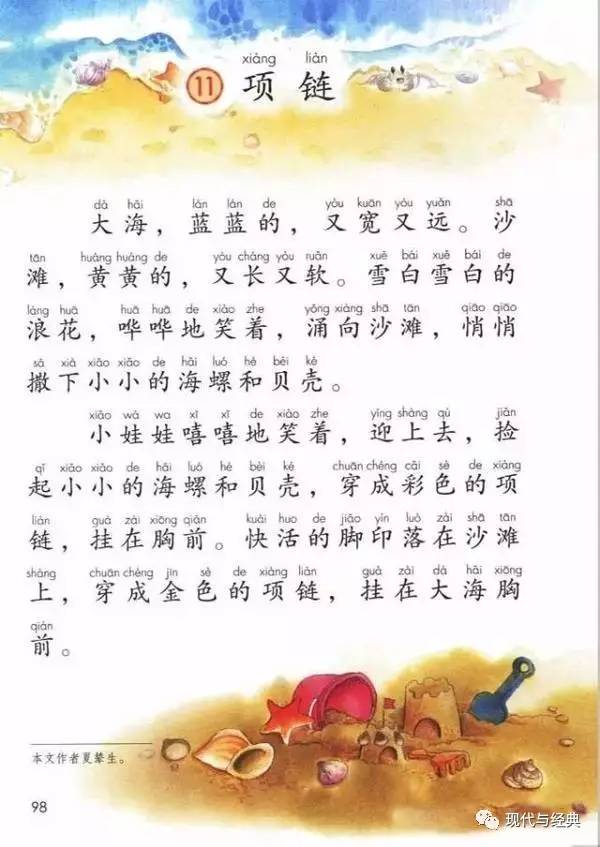 xiàng liàn
⑪ 项链
dà hǎi lán lán de yòu kuān yòu yuǎn shā
大海，蓝蓝的，又宽又远。沙
tān huáng huáng de yòu cháng yòu ruǎn xuě bái xuě bái de
滩，黄黄的，又长又软。雪白雪白的
làng huā huā huā de xiào zhe yǒng xiàng shā tān qiāo qiāo
浪花，哗哗地笑着，涌向沙滩，悄悄
sǎ xià xiǎo xiǎo de hǎi luó hé bèi ké
撒下小小的海螺和贝壳。
xiǎo wá wa xī xī de xiào zhe yíng shàng qù jiǎn
小娃娃嘻嘻地笑着，迎上去，捡
qǐ xiǎo xiǎo de hǎi luó hé bèi ké chuān chéng cǎi sè de xiàng
起小小的海螺和贝壳，穿成彩色的项
liàn guà zài xiōng qián kuài huo de jiǎo yìn luò zài shā tān
链，挂在胸前。快活的脚印落在沙滩
shàng chuān chéng jīn sè de xiàng liàn guà zài dà hǎi xiōng
上，穿成金色的项链，挂在大海胸
qián
前。
本文作者夏辇生。
98
现代与经典